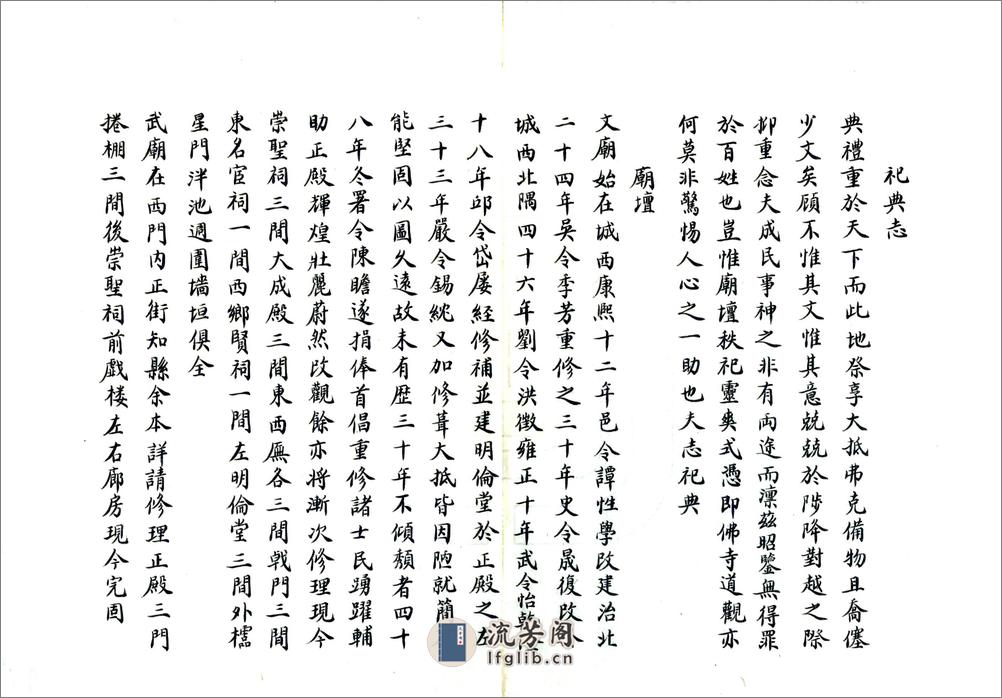 祀典志
典禮重於天下而此地祭享大抵弗克備物且喬僿
少文矣顧不惟其文惟其意兢兢於陟降對越之際
抑重念夫成民事神之非有両途而凛兹昭鑒無得罪
於百姓也豈惟廟壇秩祀靈爽式憑即佛寺道觀亦
何莫非驚惕人心之一助也夫志祀典
廟壇
文廟始在城西康熙十二年邑令譚性學改建治北
二十四年吳令季芳重修之三十年史令晟復改今
城西北隅四十六年劉令洪徵雍正十年武令怡乾
十八年邱令岱屡経修補並建明倫堂於正殿之左
三十三年嚴令錫綋又加修葺大抵皆因陋就簡
能堅固以圖久遠故未有歷三十年不傾頹者四十
八年冬署令陳瞻遂捐俸首倡重修諸士民踴躍輔
助正殿輝煌壯麗蔚然改觀餘亦將漸次修理現今
崇聖祠三間大成殿三間東西廡各三間戟門三間
東名宦祠一間西鄉賢祠一間左明倫堂三間外櫺
星門泮池週圍墻垣俱全
武廟在西門内正街知縣余本詳請修理正殿三門
捲棚三間後崇聖祠前戲楼左右廊房現今完固
流芳阁
lfglib.cn